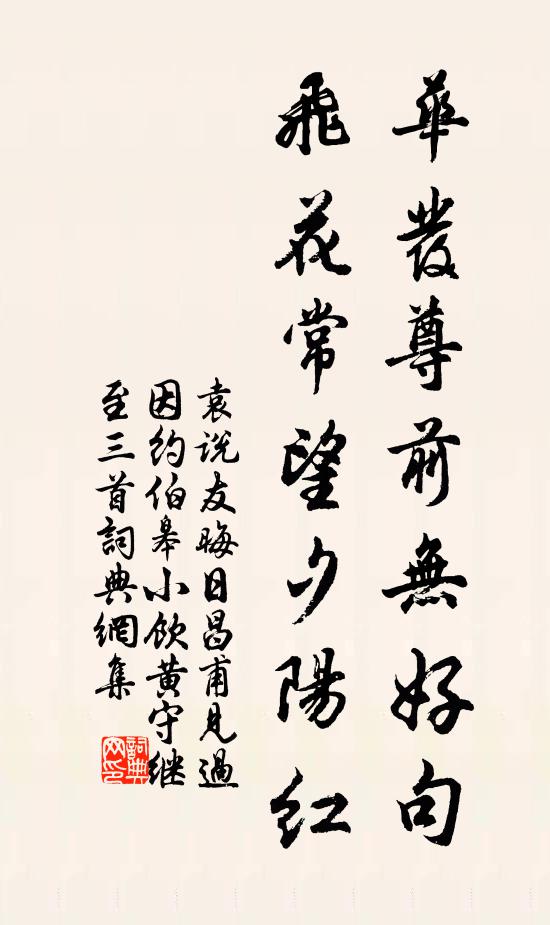 華發尊前無好句
飛花常望夕陽紅
袁說友晦日昌甫見過
因約伯皋小飲黄守继
至三首詞典網集
詞典网印